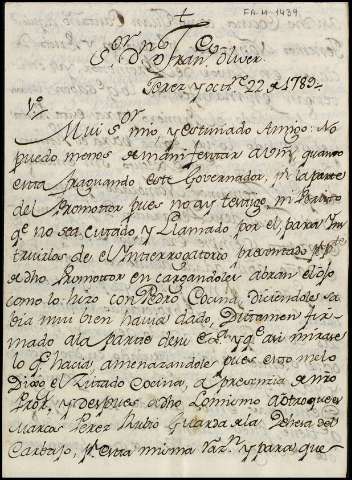 FA-H-1439
Sor. Dn. Franco. Oliver.
Jerez y octre. 22 de 1789.
1º
Mui Sor. mio, y estimado Amigo: No
puedo menos de manifestar a Vm. quanto
esta fraguando este Governador, pr. la parte
del Promottor pues no ay testigo, ni Perito
qe. no sea Citado, y Llamado por el, para Ins
truirlos de el Interrogatorio presentado pr. pte.
de dho Promottor encargandoles abran el ojo
como lo hizo con Pedro Cocina, diciendole sa
bia mui bien havia dado, Dictamen fir
mado a la parte de su Exa. y qe. asi mirase
lo qe. hacia, amenazandole, pues esto me lo
Dixo el Zitado Cocina, a presencia de nro
Pror. y despues a dho Lo mismo a otro que es
Marcos Perez Rubio Guarda de la Dehesa del
Carbajo, pr. esta misma razn. y para que